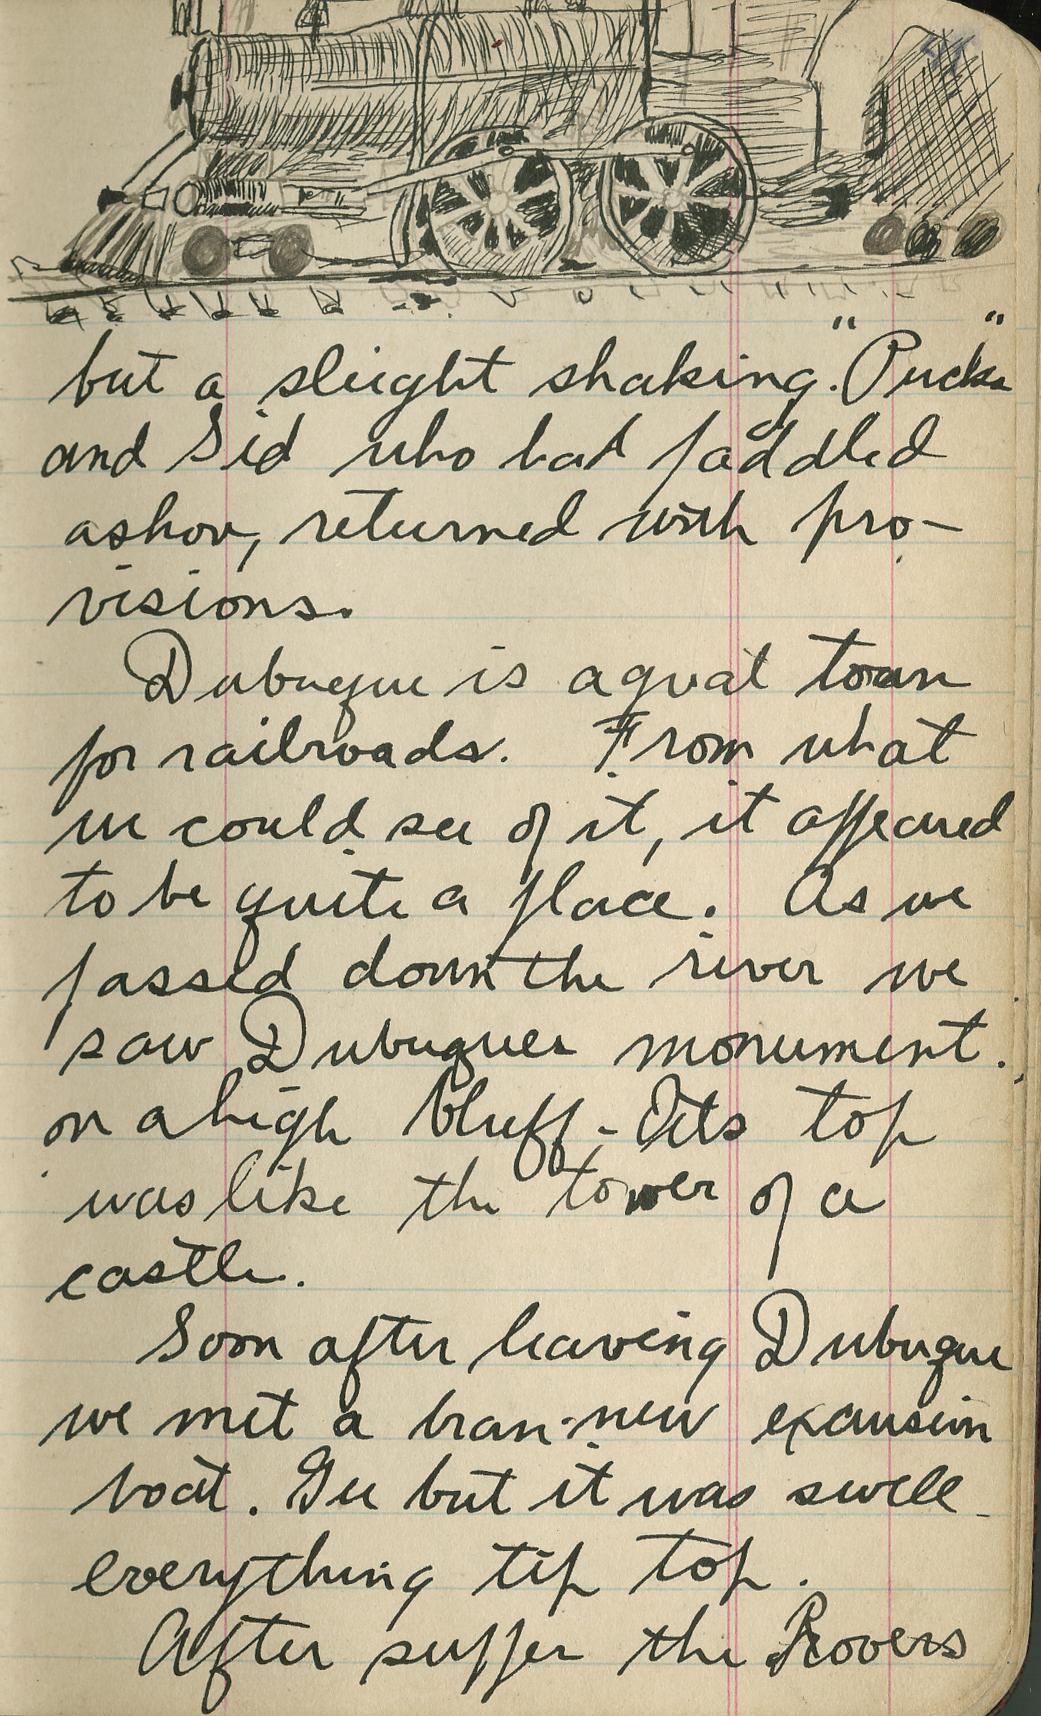 but a sleight shaking. "Pucka"
and Sid who had paddled
ashor, returned with pro-
visions.
Dubuque is a great town
for railroads. From what
we could see of it, it appeared
to be quite a place. As we
passed down the river we
saw Dubuques monument.
on a high bluff - Its top
was like the tower of a
castle.
Soon after leaving Dubuque
we met a bran-new excursion
boat. Gee but it was swell
everything tip top.
After supper the Rovers